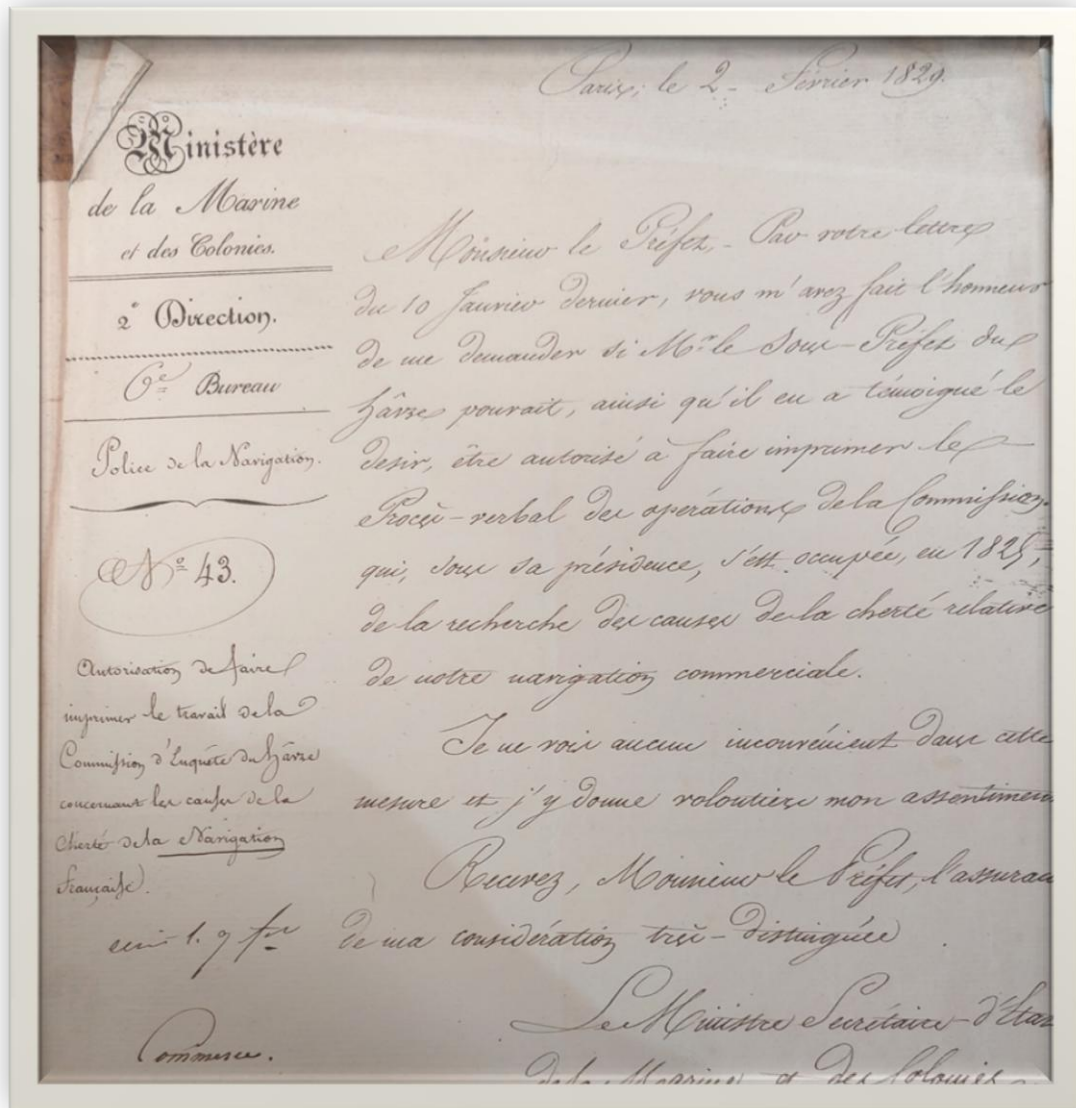 Paris, le 2 - Février 1829.
Ministère
de la Marine
et des Colonies.
2e Direction.
6e Bureau
Police de la Navigation.
N° 43.
Autorisation de faire
imprimer le travail de la
Commission d'Enquête du Hâvre
concernant les causes de la
cherté de la Navigation
Française.
écrit l. 9 fer
Commerce.
Monsieur le Préfet, - Par votre lettre
du 10 Janvier dernier, vous m'avez fait l'honneur
de me demander si Mr. le Sous-Préfet du
Hâvre pourait, ainsi qu'il en a témoigné le
desir, être autorisé à faire imprimer le
Procès-verbal des opérations de la Commission
qui, sous sa présidence, s'est occupée, en
de la recherche des causes de la cherté relative
de notre navigation commerciale.
Je ne vois aucun inconvénient dans cette
mesure et j'y donne volontiers mon assentimen
Recevez, Monsieur le Préfet, l'assuran
de ma considération très-distinguée
Le Ministre Secrétaire d'Etat
de la Marine et des Colonies